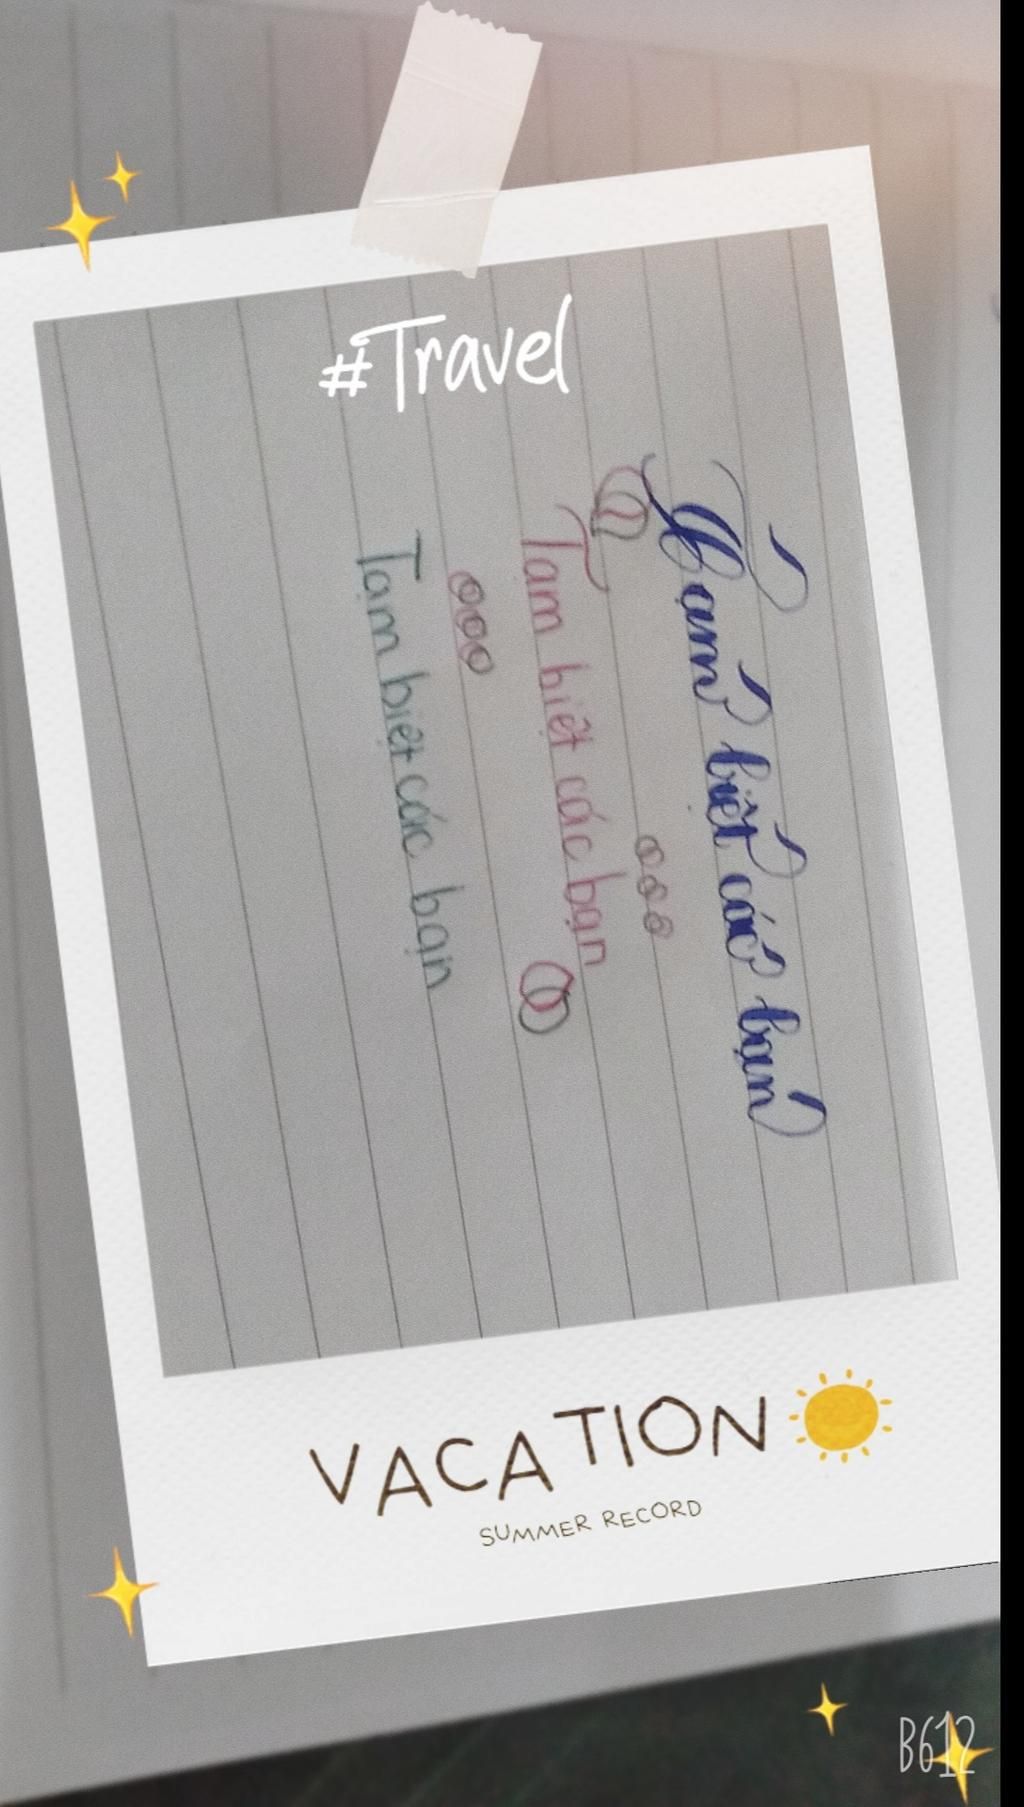 #Travel
Tạm biệt các bạn
Tam biệt các bạn
Tạm biệt các bạn
VACATION
SUMMER RECORD
B612